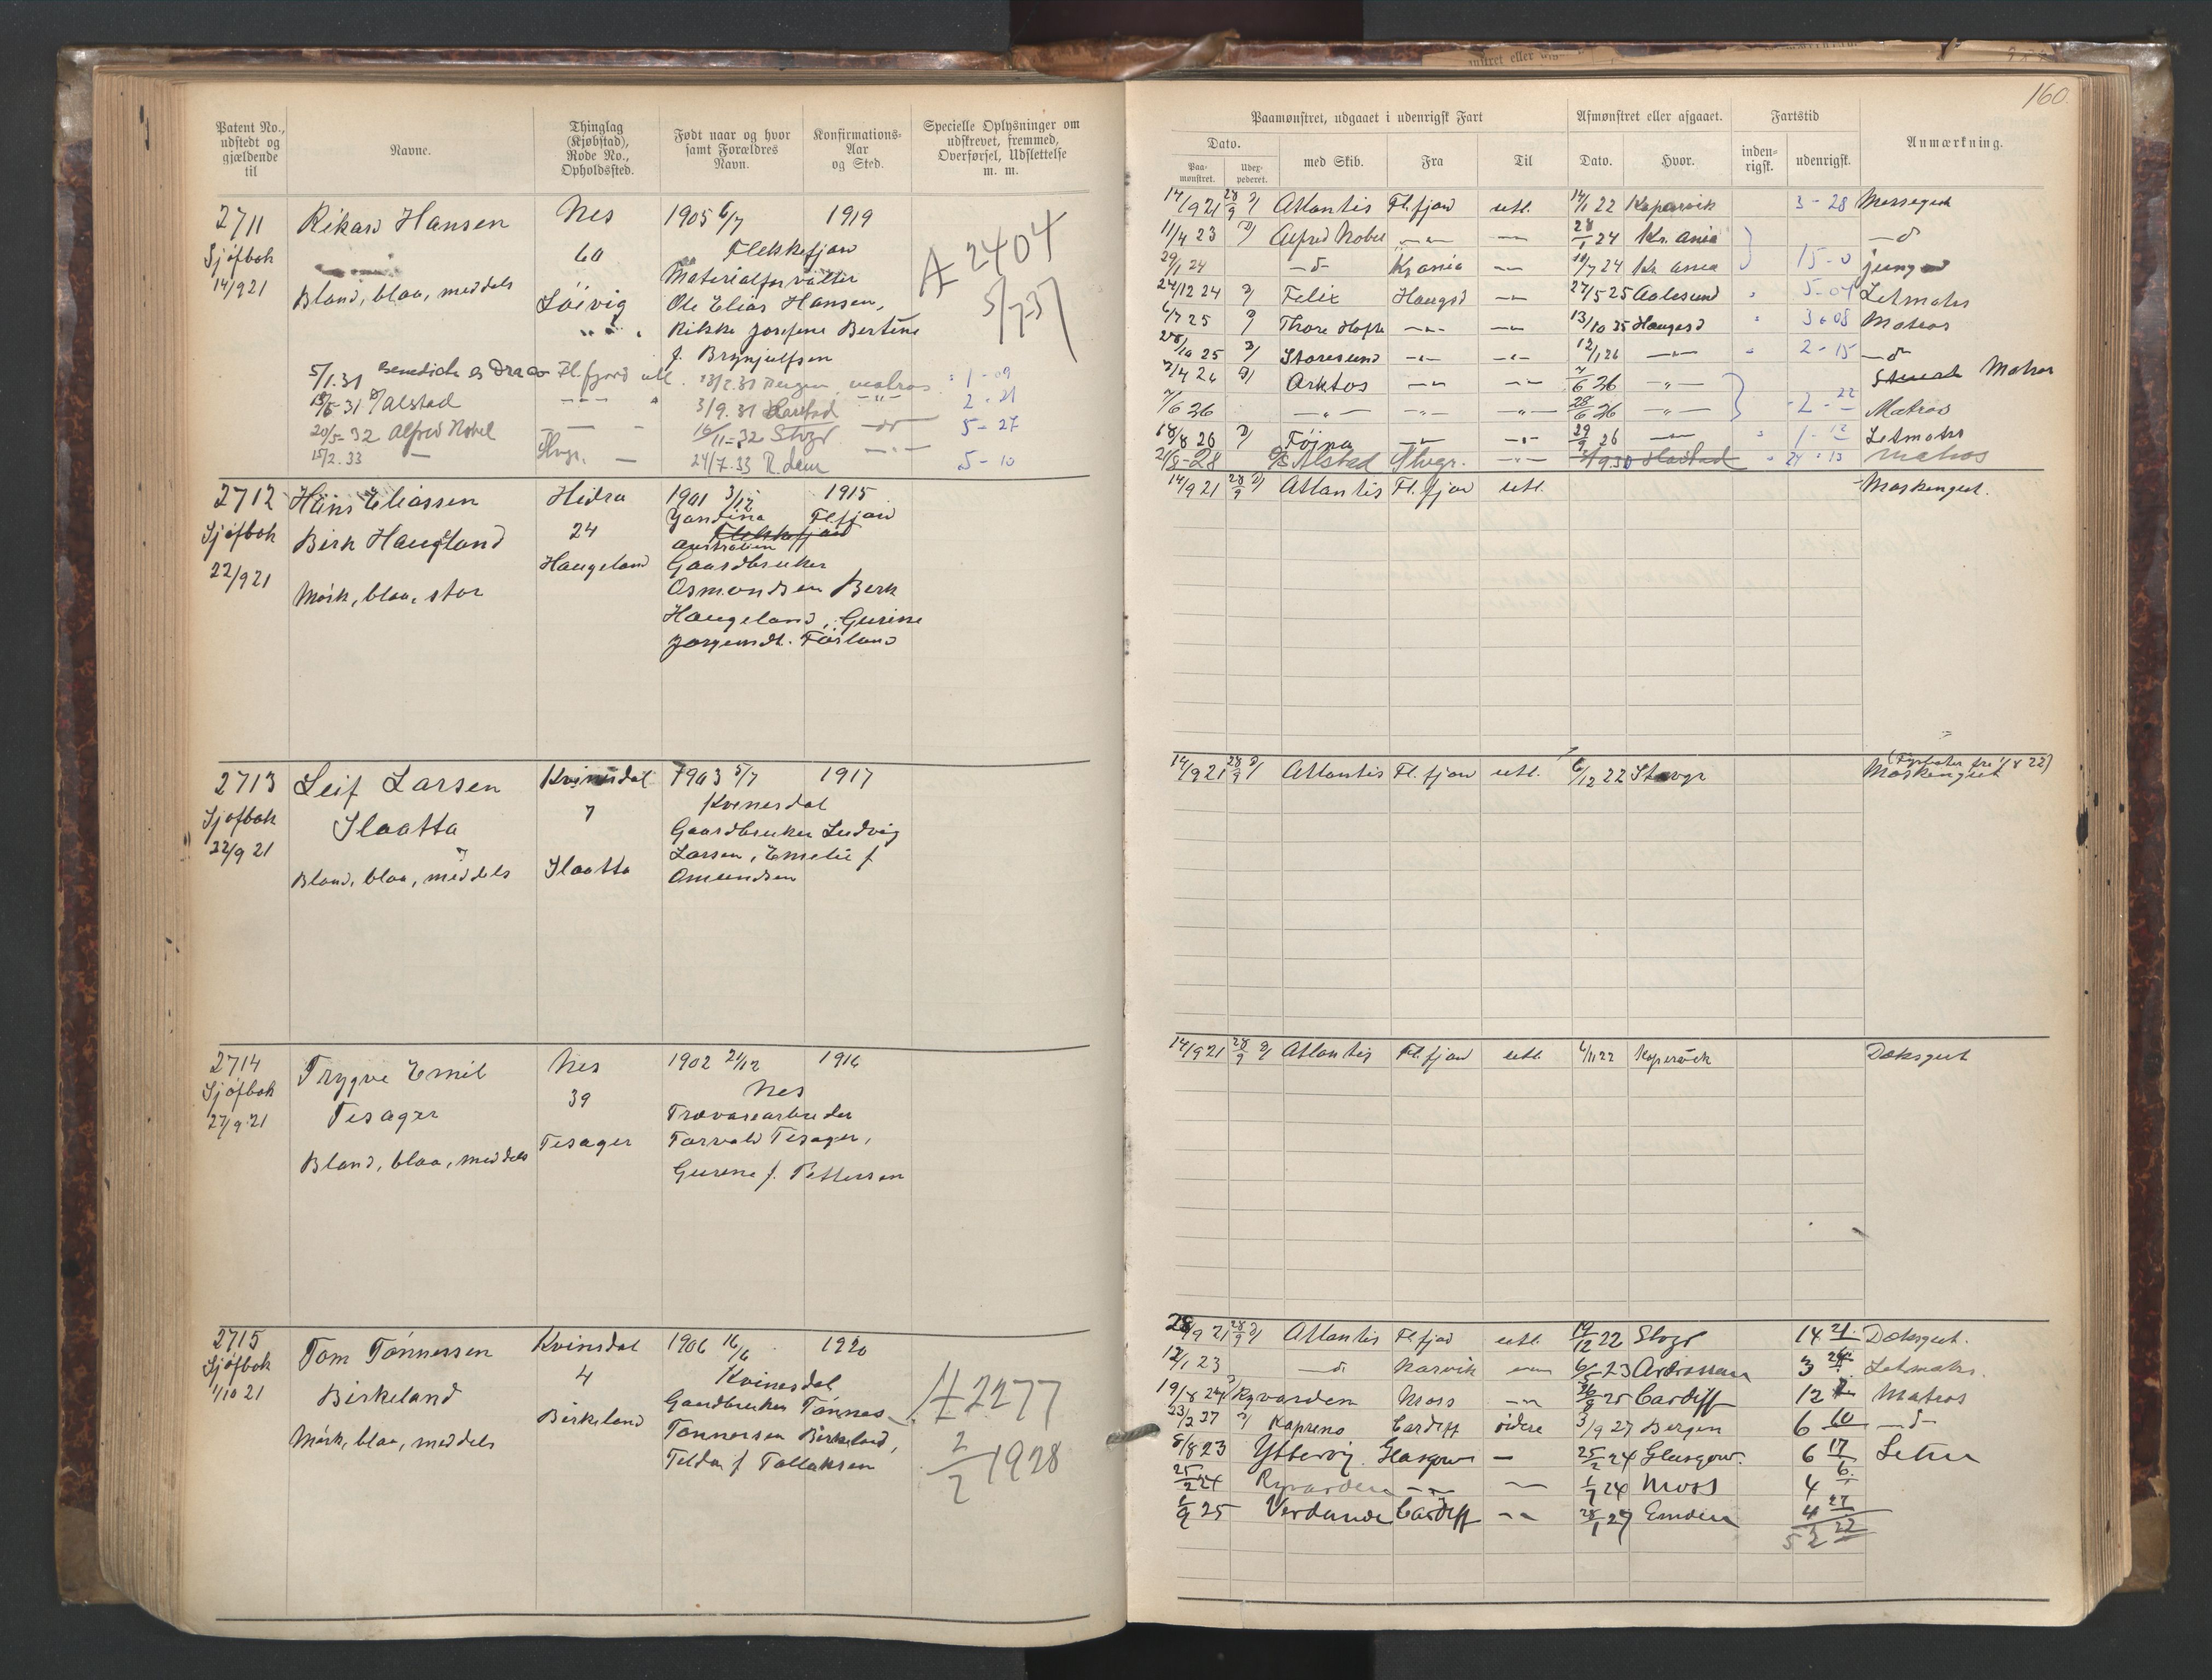 Patent No., udstedt og gjældende til
Navne.
Thinglag (Kjøbstad), Rode No., Opholdssted.
Født naar og hvor samt Forældres Navn.
Konfirmations-Aar og Sted.
Specielle Oplysninger om udskrevet, fremmed, Overførsel, Udslettelse m. m.
2711 Rikard Hansen Nes 1905 6/7 1919
Sjøfbok 60 Flekkefjord
14/9 21 Materialforvalter
Blond, blaa, meddels Løivig Ole Elias Hansen,
Rikke Josefine Bertine
f. Brynjulfsen
A 2404
5/1.31 Benedicte es Draco Fl.fjord utl. 13/2.31 Bergen matros 1-09
Alstad 3/9.31 Harstad 2-21
20/5-32 Alfred Nobel 16/11-32 Stvgr 5-27
15/2.33 Stvgr. 24/7.33 R.dam 5-10
2712 Hans Eliassen Hidra 1901 3/12 1915
Yandina Fl.fjord
Sjøfbok Birk Haugland 24 Flekkefjord
Australien
22/9 21 Haugeland Gaardbruker
Mørk, blaa, stor Osmondsen Berk
Haugeland, Gurine
Jorgensdt. Førland
2713 Leif Larsen Kvinesdal 1903 5/7 1917
Sjøfbok Slaatta 7 Kvinesdal
22/9 21 Gaardbruker Ludvig
Blond, blaa, meddels Slaatta Larsen, Emelie f
Omundsen
2714 Trygve Emil Nes 1902 21/12 1916
Sjøfbok Tesager 39 Nes
27/9 21 Trævarearbeider
Blond, blaa, meddels Tesager Torvald Tesager,
Gurine f. Pettersen
2715 Tom Tønnessen Kvinesdal 1906 16/6 1920
Sjøfbok Birkeland 4 Kvinesdal
1/10 21 Birkeland Gaardbruker Tønnes
Mørk, blaa, meddels Tønnessen Birkeland,
Telda f Tollaksen
A 2277
2/2 1928
160
Paamønstret, udgaaet i udenrigsk Fart
Afmønstret eller afgaaet.
Fartstid
Anmærkning.
Dato.
Paa-mønstret.
Udex-pederet.
med Skib.
Fra
Til
Dato.
Hvor.
inden-rigsk.
udenrigsk.
14/9 21 28/9 Atlantis Fl.fjord utl. 14/1 22 Kopervik 3-28 Messegut
11/4 23 Alfred Nobel —"— —"— 28/1 24 Kr.ania —d—
29/1 24 —d— Kr.ania —"— 14/7 24 Kr.ania 15-0 jungm
24/12 24 Felix Haugsd —"— 27/5 25 Aalesund 5-04 Letmatr
6/7 25 Thore Hafte —"— —"— 13/10 25 Haugesd 3-08 Matros
28/10 25 Storesund —"— —"— 12/1 26 —"— 2-15 —d—
2/4 26 Arktos —"— —"— 7/6 26 —"— Stuert Matros
7/6 26 —"— —"— —"— 28/6 26 —"— 2-22 Matros
18/8 26 Töjna —"— —"— 29/9 26 —"— 1-12 Letmatr
21/8-28 Alstad Stvgr. —"— 3/9.30 Harstad 24-13 Matros
14/9 21 28/9 Atlantis Fl.fjord utl. Maskingut.
14/9 21 28/9 Atlantis Fl.fjord utl. 6/12 22 Stavgr (Fyrbøter fra 1/8 22)
Maskingut
14/9 21 28/9 Atlantis Fl.fjord utl. 6/11 22 Kopervik Dæksgut
28/9 21 28/9 Atlantis Fl.fjord utl. 19/12 22 Stvgr 14 21 Dæksgut.
12/1 23 —d— Narvik 6/5 23 Ardrossan 3 24 Letmatr.
19/8 24 Ryvarden Moss —"— 26/8 25 Cardiff 12 7 Matros
23/2 27 Kapreno Cardiff videre 3/9 27 Bergen 6 10 —d—
8/8 23 Yttervig Glasgow — 25/2 24 Glasgow. 6 17
25/2 24 Ryvarden —"— — 1/7 24 Moss 4 6
1/9 25 Verdande Cardiff —"— 28/1 27 Emden 4 27
52 22